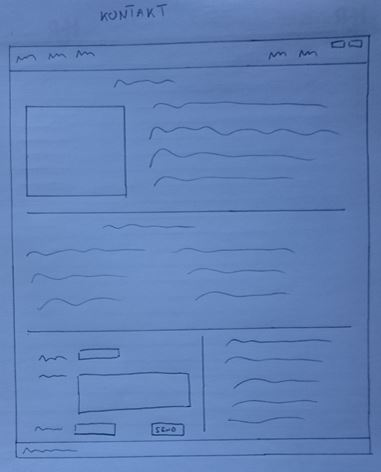 KONTAKT
SEND